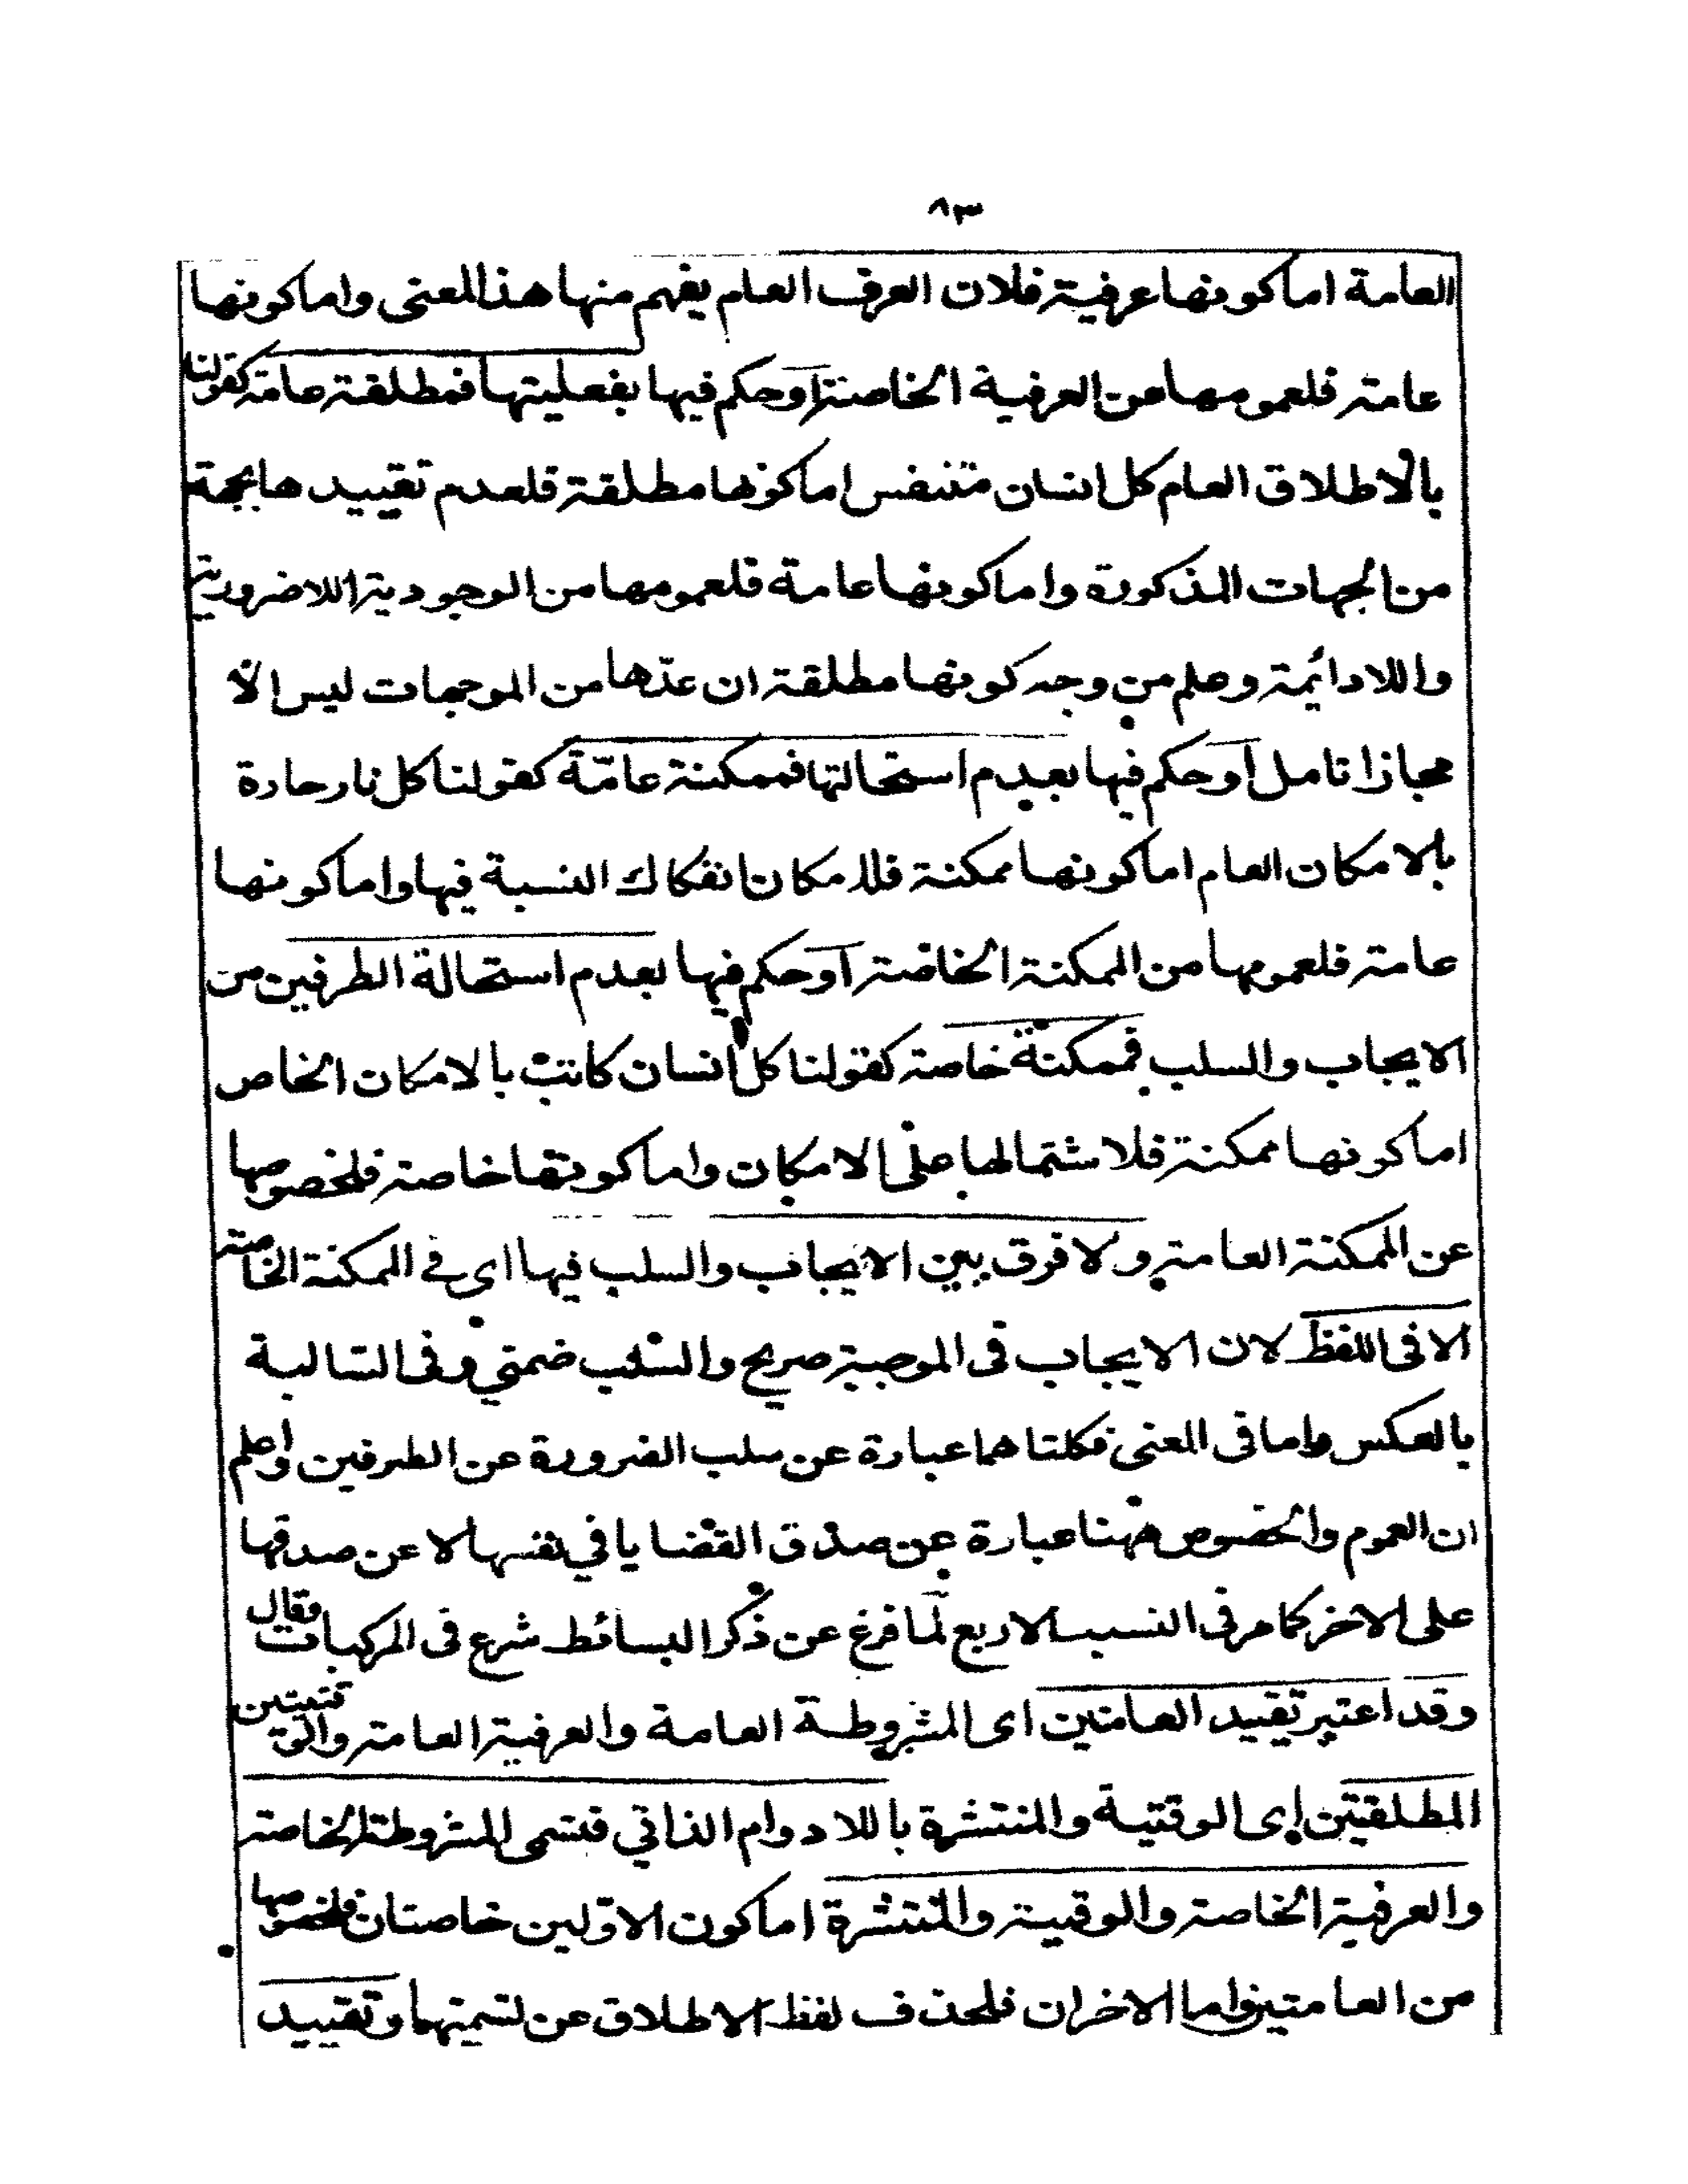 ٨٣
العامة اما كونها عرفية فلان العرف العام يفهم منها هذا المعنى واما كونها
عامة فلعمومها عن العرفية الخاصة او حكم فيها بفعليتها فمطلقة عامة كقولنا
بالاطلاق العام كل انسان متنفس اما كونها مطلقة فلعدم تقييدها بجهة
من الجهات المذكورة واما كونها عامة فلعمومها من الوجودية اللاضرورية
واللادائمة وعلم من وجه كونها مطلقة ان عدّها من الموجهات ليس الّا
مجازا تامل او حكم فيها بعدم استحالتها فممكنة عامّة كقولنا كل نار حارة
بالامكان العام اما كونها ممكنة فلامكان انفكاك النسبة فيها واما كونها
عامة فلعمومها من الممكنة الخاصة او حكم فيها بعدم استحالة الطرفين من
الايجاب والسلب فممكنة خاصة كقولنا كل انسان كاتب بالامكان الخاص
اما كونها ممكنة فلاشتمالها على الامكان واما كونها خاصة فلخصوصها
عن الممكنة العامة ولا فرق بين الايجاب والسلب فيها اى في الممكنة الخاصة
الا فى اللفظ لان الايجاب فى الموجبة صريح والسلب ضمني وفى السالبة
بالعكس واما فى المعنى فكلتاهما عبارة عن سلب الضرورة عن الطرفين واعلم
ان العموم والخصوص ههنا عبارة عن صدق القضايا في نفسها لا عن صدقها
على الاخر كما مر فى النسب الاربع لما فرغ عن ذكر البسائط شرع فى المركبات فقال
وقد اعتبر تقييد العامتين اى المشروطة العامة والعرفية العامة والوقتيتين
المطلقتين اى الوقتية والمنتشرة باللادوام الذاتي فتسمى المشروطة الخاصة
والعرفية الخاصة والوقتية والمنتشرة اما كون الاوّلين خاصتان فلخصوصها
من العامتين واما الاخران فلحذف لفظ الاطلاق عن تسميتهما وتقييد